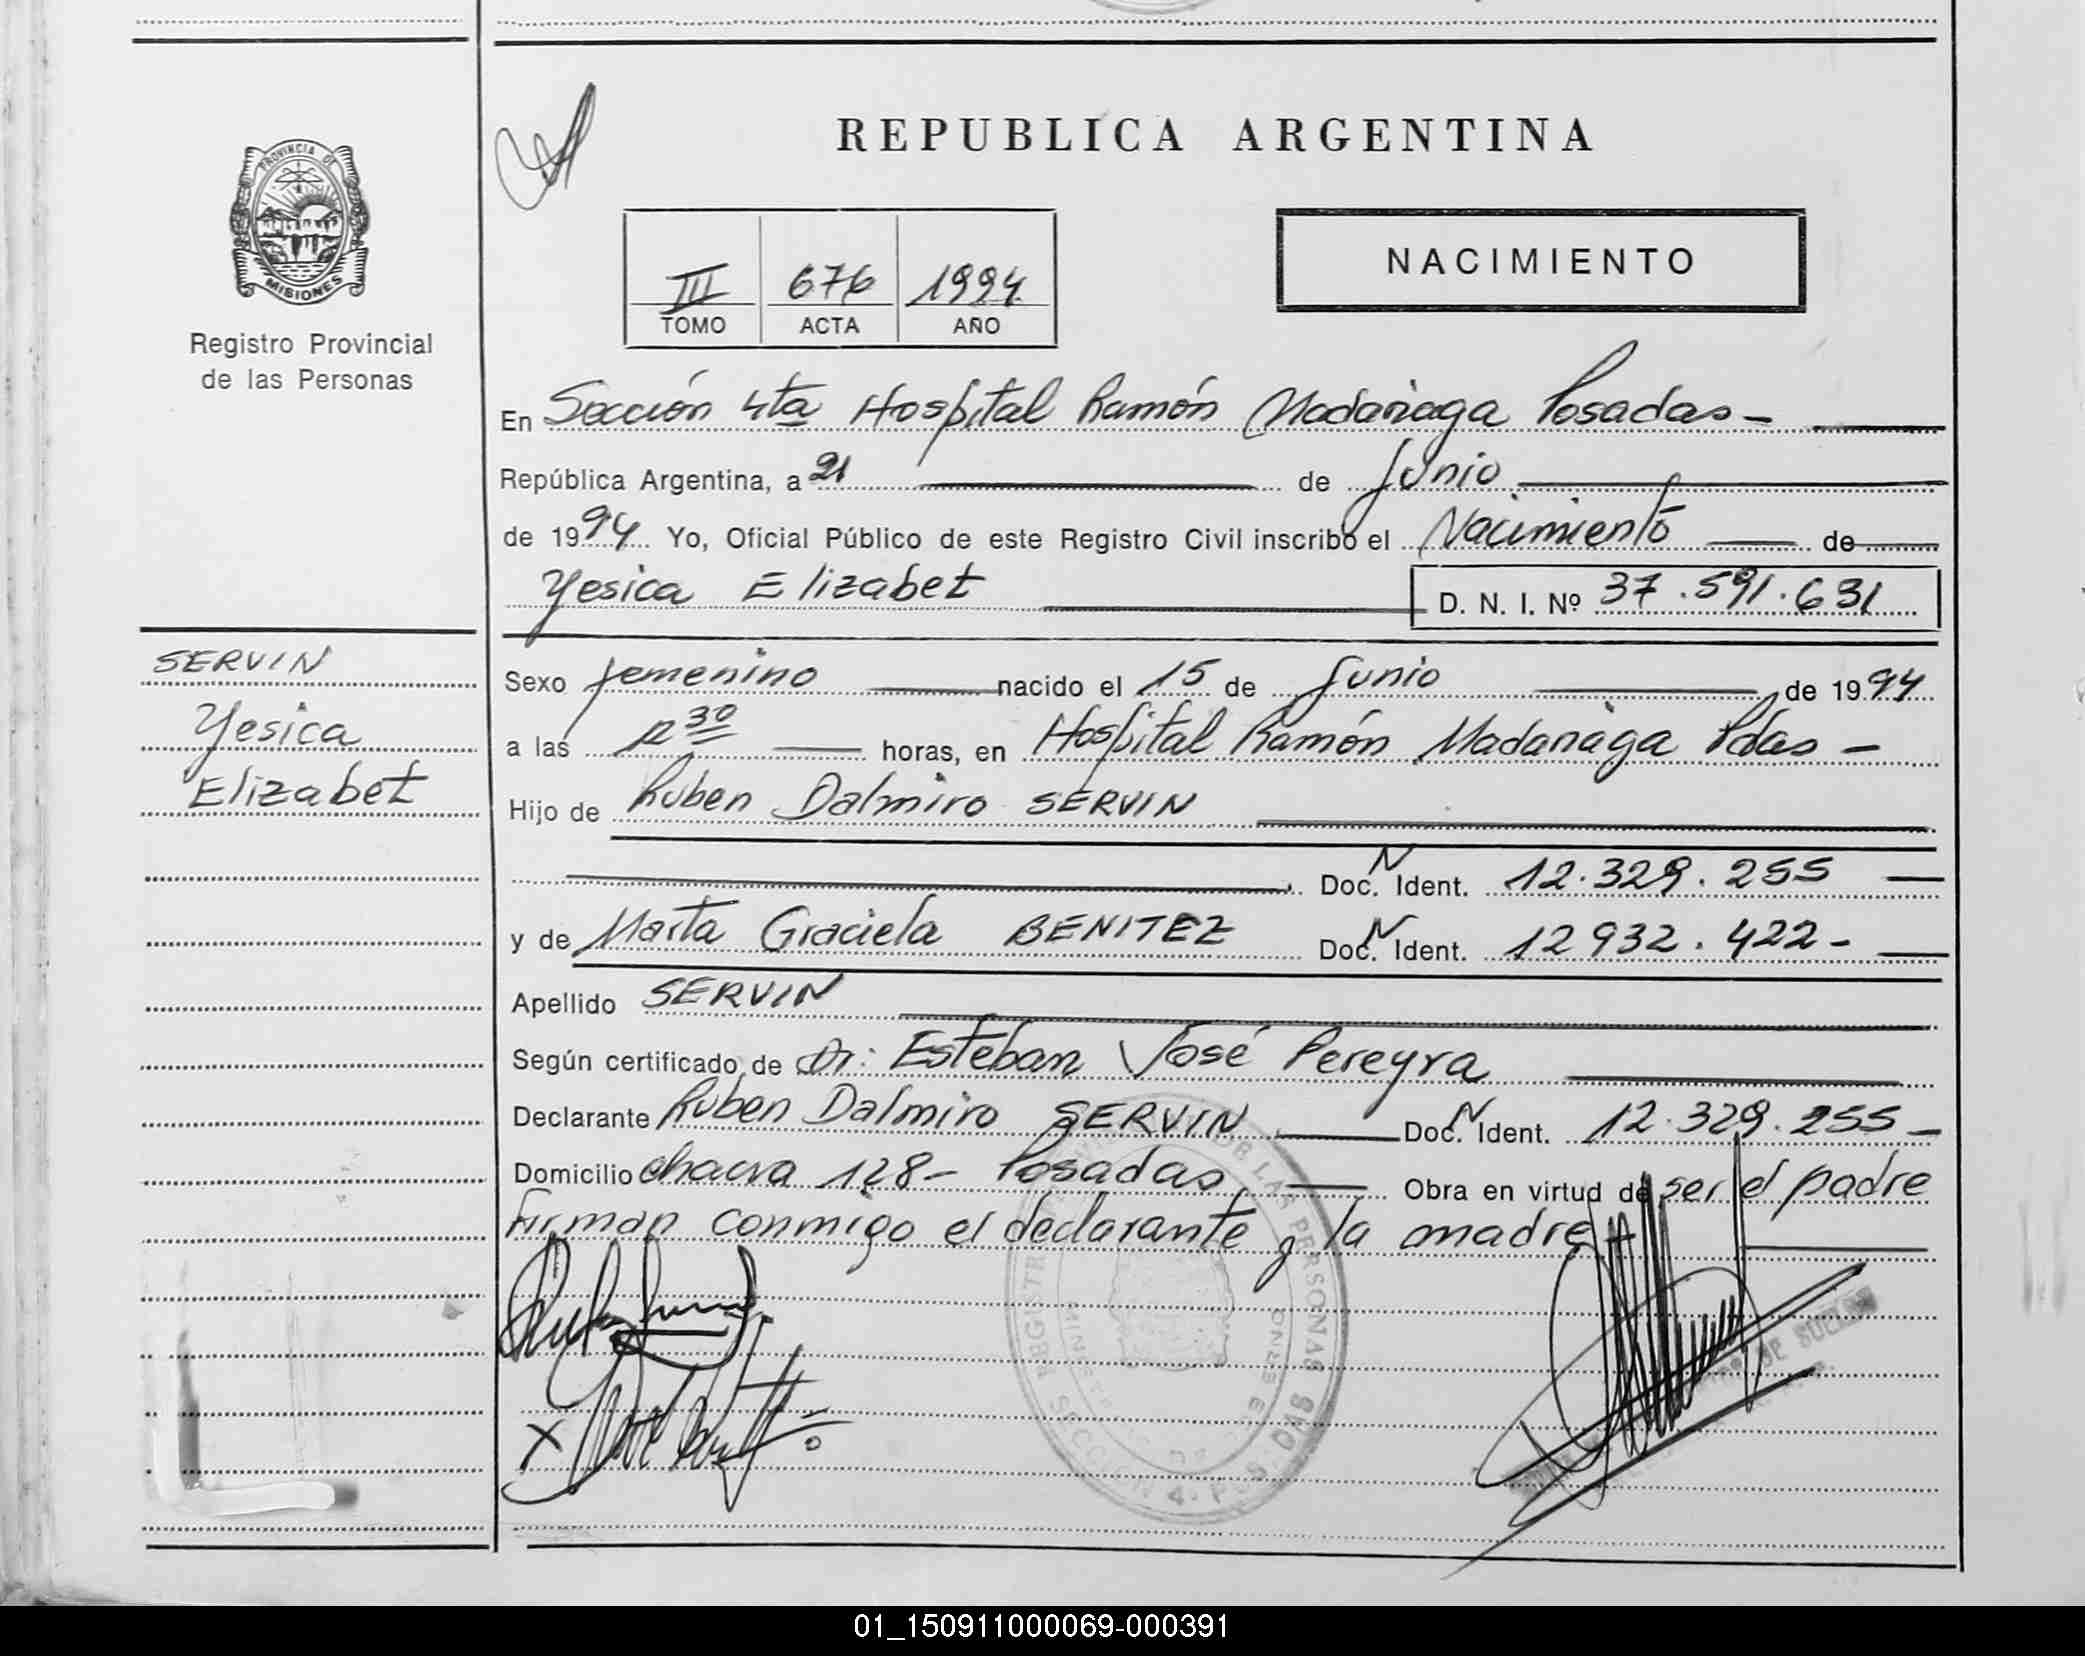 REPUBLICA ARGENTINA
PROVINCIA DE
MISIONES
Registro Provincial
de las Personas
III 676 1994
TOMO ACTA AÑO
NACIMIENTO
En Sección 4ta Hospital Ramón Madariaga Posadas-
República Argentina, a 21 de Junio
de 1994 Yo, Oficial Público de este Registro Civil inscribo el Nacimiento de
Yesica Elizabet D. N. I. Nº 37.591.631
SERVIN
Yesica
Elizabet
Sexo femenino nacido el 15 de Junio de 1994
a las 12 30 horas, en Hospital Ramón Madariaga Pdas-
Hijo de Ruben Dalmiro SERVIN
Doc. N Ident. 12.329.255
y de Marta Graciela BENITEZ Doc. N Ident. 12932.422-
Apellido SERVIN
Según certificado de Dr: Esteban José Pereyra
Declarante Ruben Dalmiro SERVIN Doc. N Ident. 12.329.255-
Domicilio chacra 128- Posadas Obra en virtud de ser el padre
Firman conmigo el declarante y la madre-
REGISTRO DE LAS PERSONAS
MINISTERIO DE GOBIERNO
SECCION 4a POSADAS
01_150911000069-000391